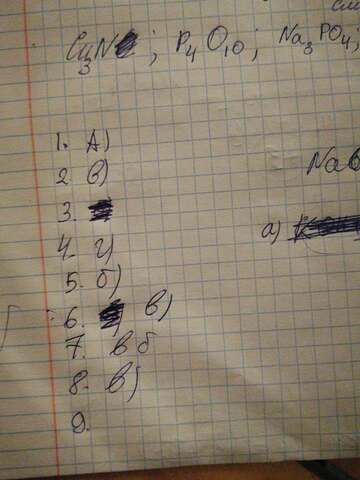 Cu₃N ; P₄O₁₀; Na₃PO₄;
1. А)
2. в)
3.
а)
4. г)
5. б)
6. в)
7. в б
8. в)
9.